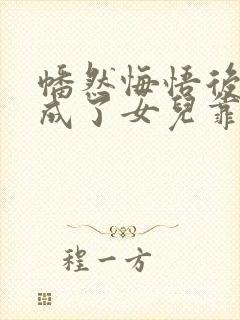 幡然悔悟後
成了女兒靠
程一方